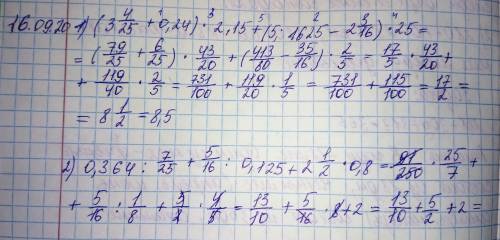 16.09.20 1) (3 4/25 + 0,24) · 2,15 + (5,1625 - 2 3/16) · 25 =
= (79/25 + 6/25) · 43/20 + (413/10 - 35/16) · 2/5 = 17/5 · 43/20 +
+ 119/40 · 2/5 = 731/100 + 119/20 · 1/5 = 731/100 + 115/100 = 17/2 =
= 8 1/2 = 8,5
2) 0,364 : 7/25 + 5/16 : 0,125 + 2 1/2 · 0,8 = 91/250 · 25/7 +
+ 5/16 : 1/8 + 5/2 · 4/5 = 13/10 + 5/16 · 8 + 2 = 13/10 + 5/2 + 2 =